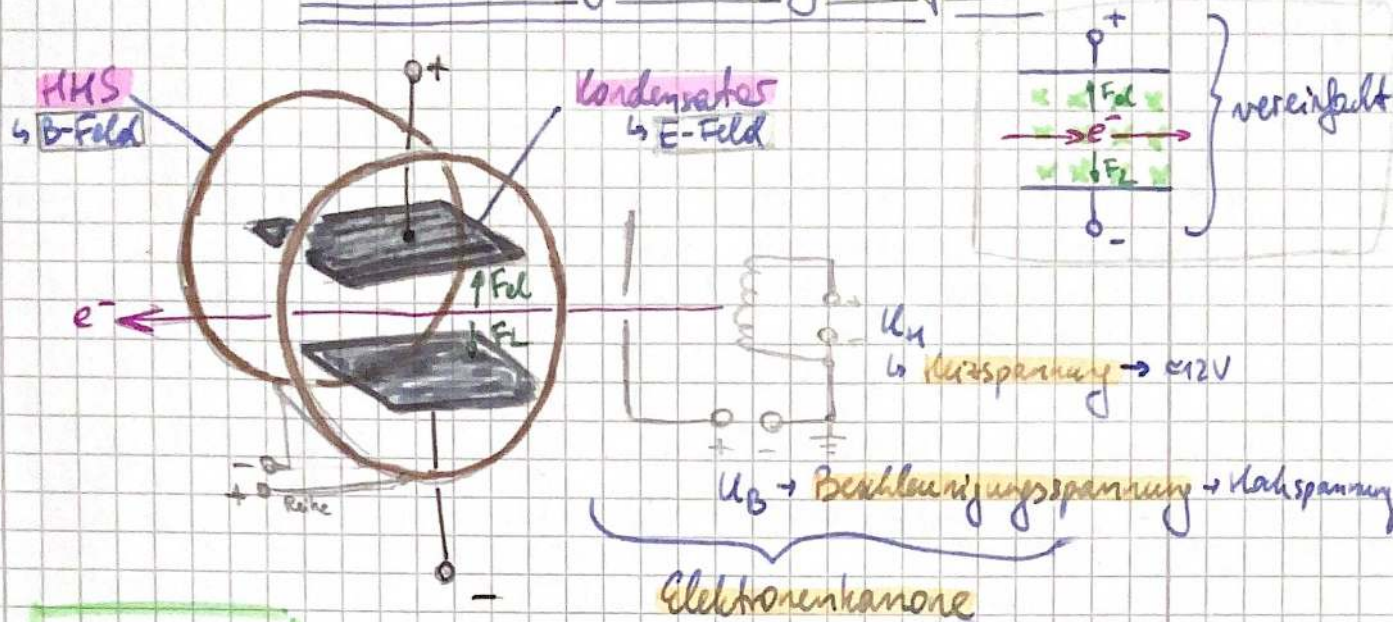 +
HHS
↳ B-Feld
Kondensator
↳ E-Feld
+
Fel
e⁻
FL
-
vereinfacht
Fel
FL
e⁻
+
-
UH
↳ Heizspannung → ≈12V
-
+
Reihe
+
-
UB → Beschleunigungsspannung → Hochspannung
-
Elektronenkanone